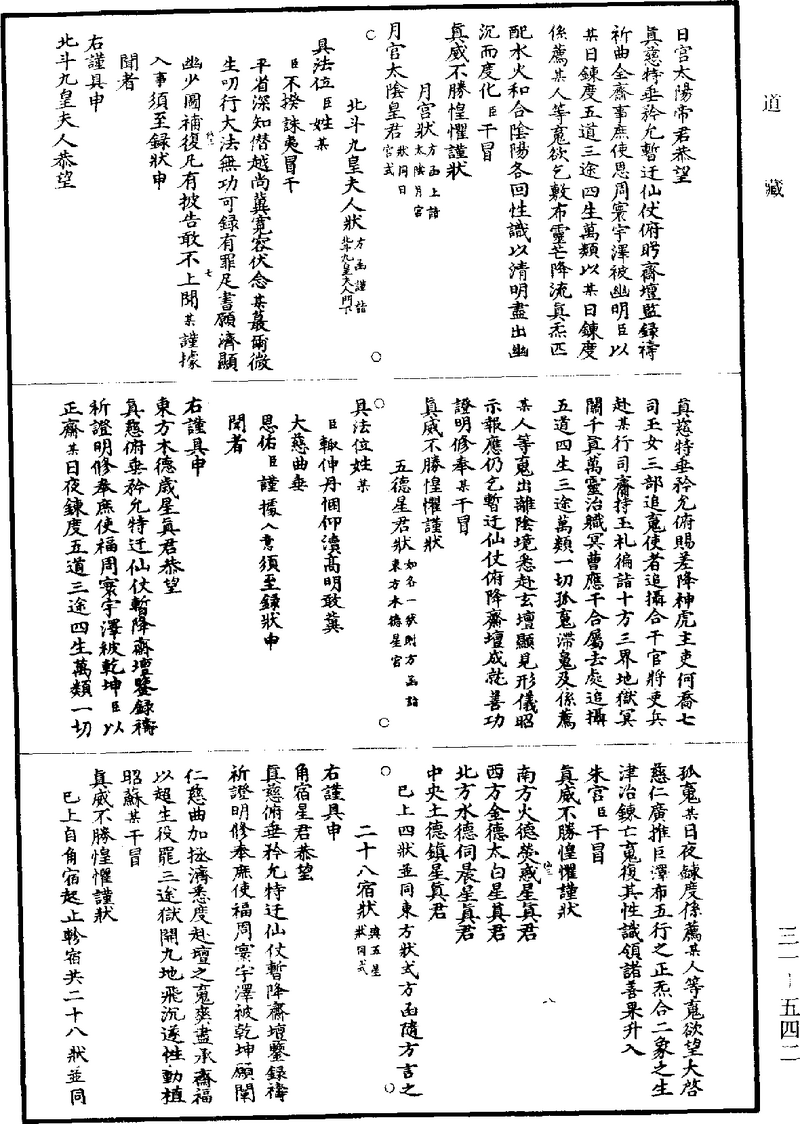 道藏
日宮太陽帝君恭望
眞慈特垂矜允暫迂仙仗俯盻齋壇監錄禱
祈曲全齋事庶使恩周寰宇澤被幽明臣以
某日鍊度五道三途四生萬類以某日鍊度
係薦某人等䰟欲乞敷布靈芒降流眞炁匹
配水火和合陰陽各回性識以清明盡出幽
沉而度化臣干冒
眞威不勝惶懼謹狀
月宮狀方函上詣太陰月宮
月宮太陰皇君狀同日宮式
北斗九皇夫人狀方函謹詣北斗九皇夫人門下
具法位臣姓某
臣不揆誅夷冒干
平省深知僭越尚冀寬容伏念某蕞爾微
生叨行大法無功可録有罪足書願濟顯
幽少圖補復凡有披告敢不上聞某謹據
入事須至録狀申
聞者
右謹具申
北斗九皇夫人恭望
七
眞慈特垂矜允俯賜差降神虎主吏何喬七
司玉女三部追䰟使者追攝合干官將吏兵
赴某行司齎持玉札徧詣十方三界地獄冥
關千眞萬靈治職冥曹應干合屬去處追攝
五道四生三途萬類一切孤䰟滯魄及係薦
某人等䰟出離陰境悉赴玄壇顯見形儀昭
示報應仍乞暫迂仙仗俯降齋壇成就善功
證明修奉某干冒
眞威不勝惶懼謹狀
五德星君狀如各一狀則方函詣東方木德星宮
具法位姓某
臣輙伸丹悃仰瀆高明敢冀
大慈曲垂
思佑臣謹據入意須至録狀申
聞者
右謹具申
東方木德歲星眞君恭望
眞慈俯垂矜允特迂仙仗暫降齋壇鑒録禱
祈證明修奉庶使福周寰宇澤被乾坤臣以
正齋某日夜鍊度五道三途四生萬類一切
孤䰟某日夜鍊度係薦某人等䰟欲望大啓
慈仁廣推巨澤布五行之正炁合二象之生
津冶鍊亡䰟復其性識領諸善果升入
朱宮臣干冒
眞威不勝惶懼謹狀
南方火德熒惑星眞君
西方金德太白星眞君
北方水德伺晨星眞君
中央土德鎮星眞君
八
已上四狀並同東方狀式方函隨方言之
二十八宿狀與五星狀同式
右謹具申
角宿星君恭望
眞慈俯垂矜允特迂仙仗暫降齋壇鑒録禱
祈證明修奉庶使福周寰宇澤被乾坤願闡
仁慈曲加拯濟悉度赴壇之䰟爽盡承齋福
以超生役罷三途獄開九地飛沉遂性動植
昭蘇某干冒
眞威不勝惶懼謹狀
已上自角宿起止軫宿共二十八狀並同
三一-五四二